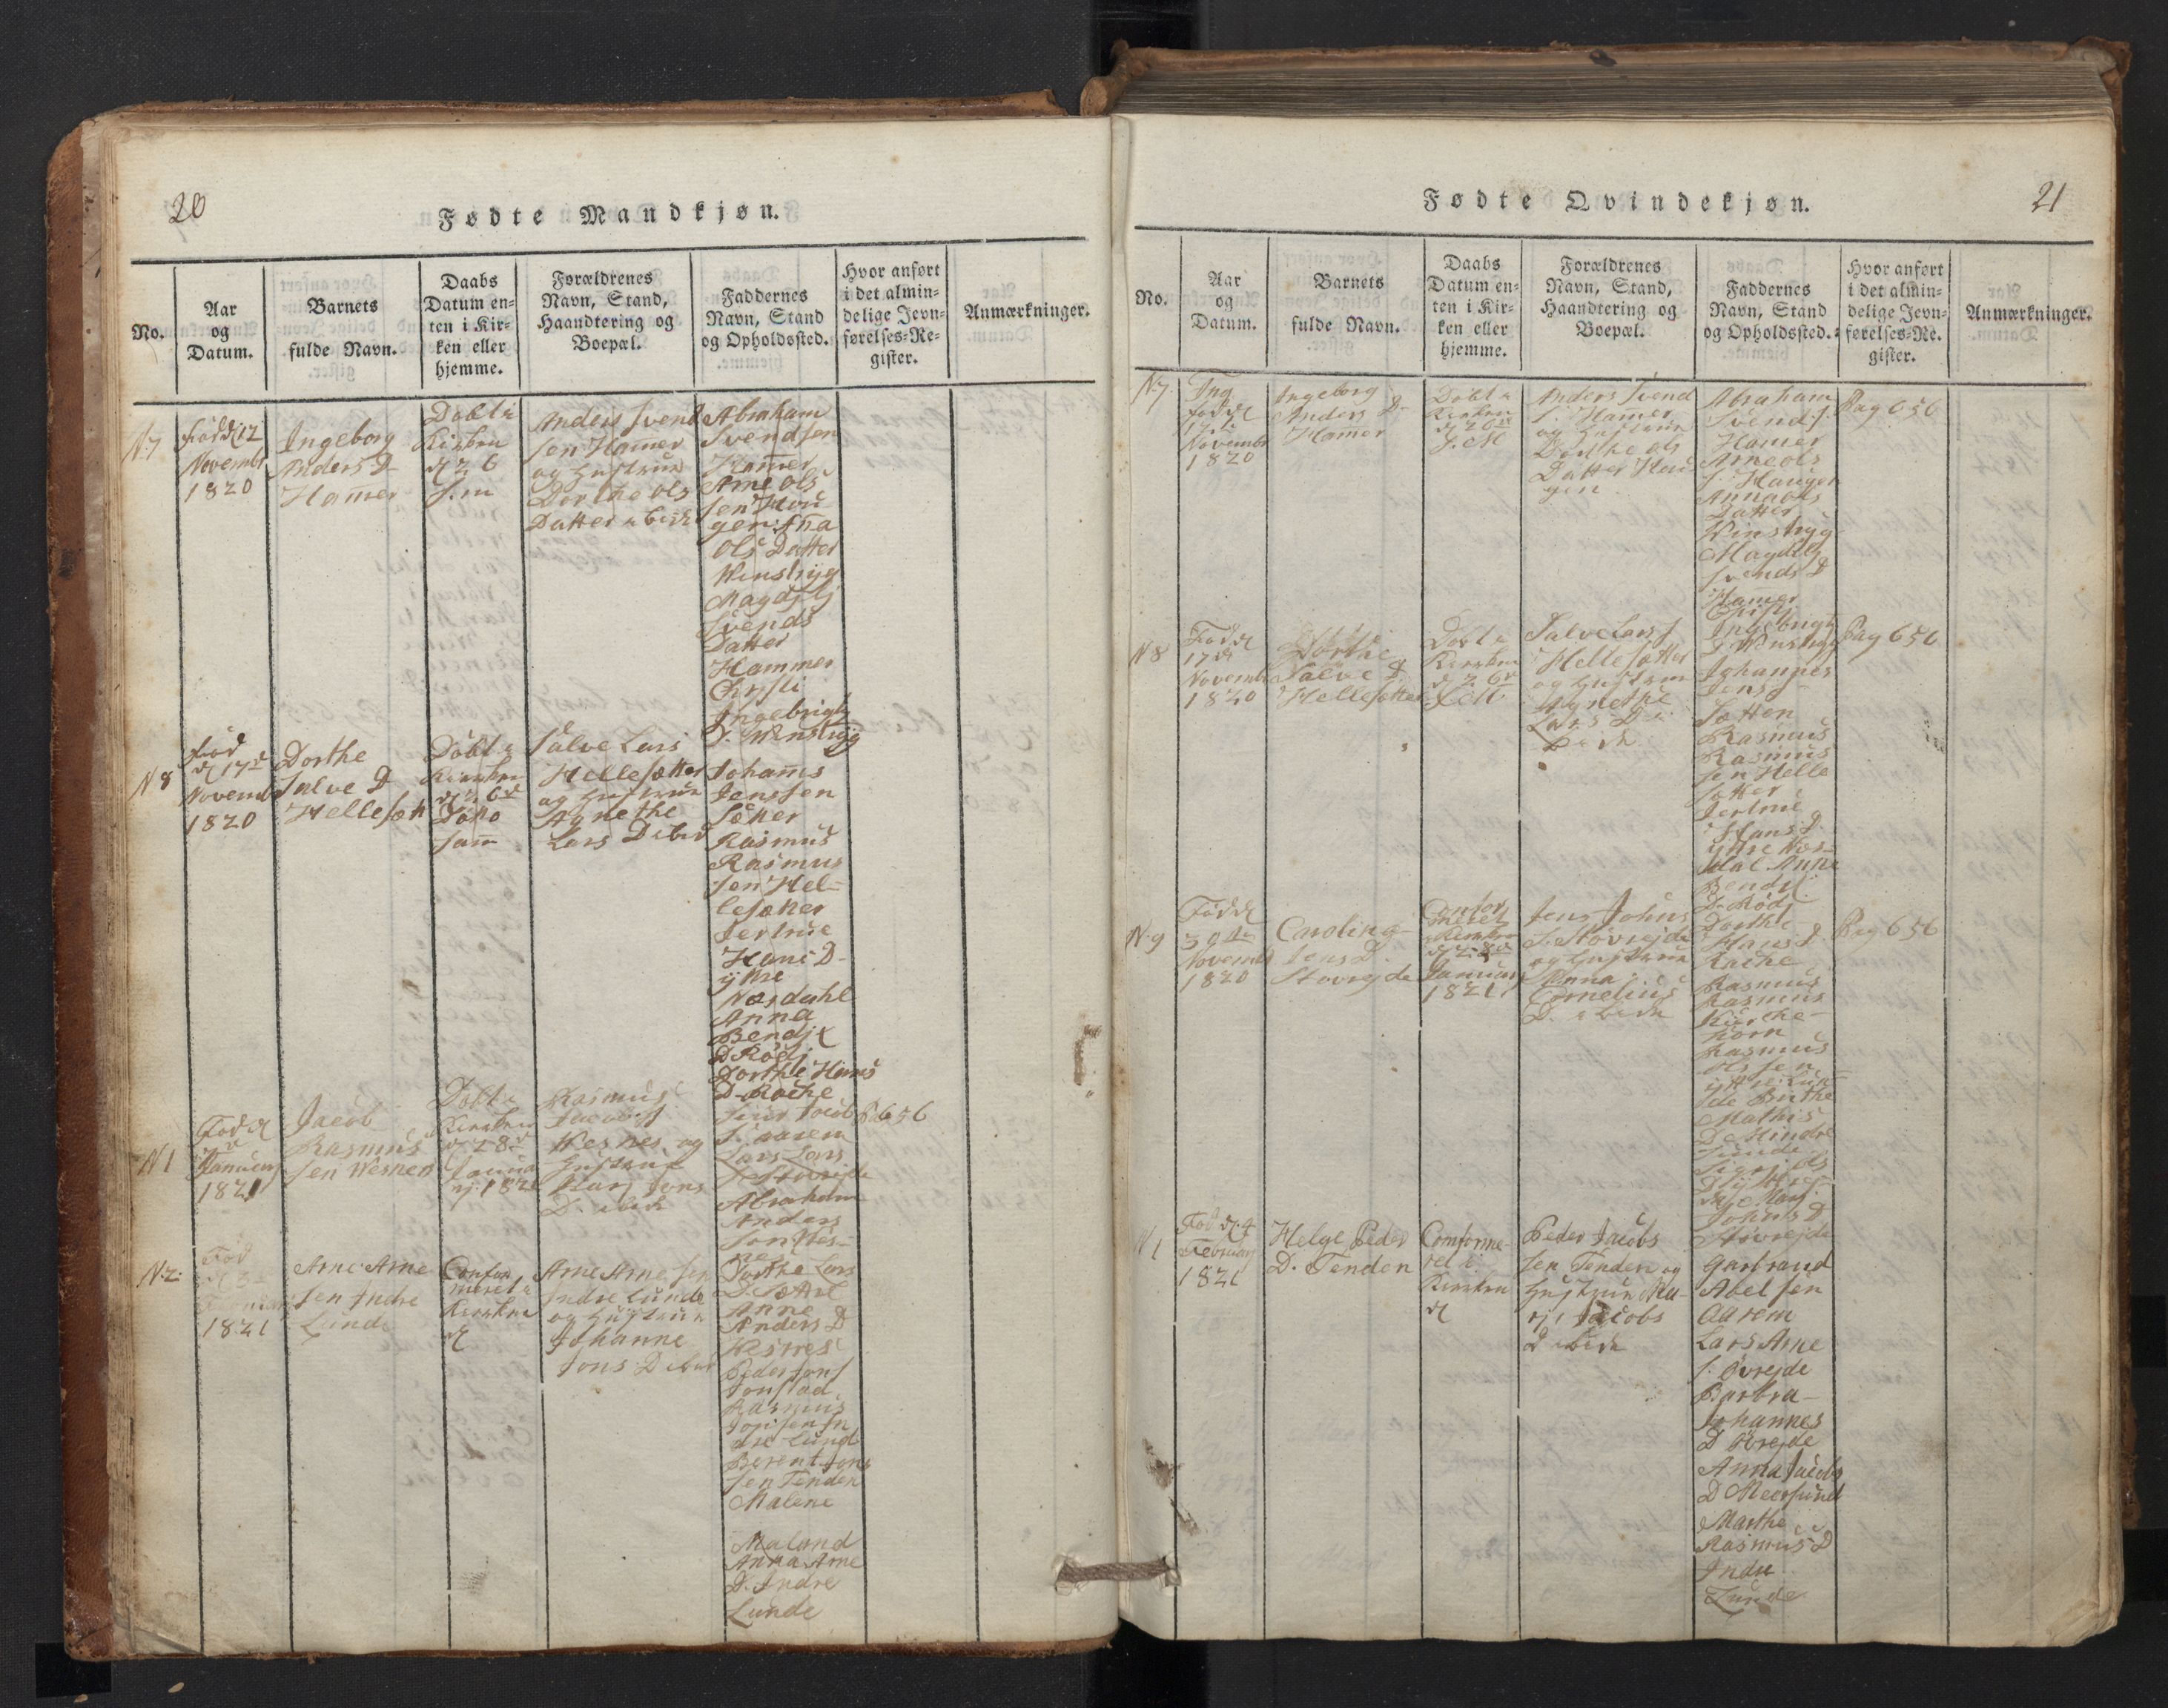 20
Fødte Mandkjøn.
No.
Aar
og
Datum.
Barnets
fulde Navn.
Daabs
Datum en-
ten i Kir-
ken eller
hjemme.
Forældrenes
Navn, Stand,
Haandtering og
Boepæl.
Faddernes
Navn, Stand
og Opholdssted.
Hvor anført
i det almin-
delige Jevn-
førelses-Re-
gister.
Anmærkninger.
N 7
Født 12
Novembr
1820
Ingeborg
Anders D
Hamer
Døbt i
Kirken
d 26
Anders Svend
sen Hamer
og Hustrue
Dorthe Ols
Datter ibid
Abraham
Svendsen
Hamer
Arne Ols
sen Hou
gen Ana
Ols Datter
Winslyg
Magdl
Svends
Datter
Hammer
Chrysti
Ingebrigt
D. Winslyg
N 8
Fød
d 17d
Novemb
1820
Dorthe
Salve D
Hellesæt
Døbt i
Kirken
d 26d
Salve Lars
Hellesætter
og Hustrue
Agnethe
Lars D ibid
Johanes
Jenssen
Sætter
Rasmus
Rasmus
sen Hel-
lesætter
Jertrue
Hans D-
ytre
Næsdahl
Anna
Bendjx
D Rödj
Dorthe Hans
D-Rache
N 1
Fød d
Januarj
1821
Jacob
Rasmus
sen Wesnes
Døbt i
Kirken
d 28d
Janua
rj 1821
Rasmus
Jacobs
Wesnes og
Hustrue
Marj Jens
D. ibid
Jacob
S. Aarem
Lars Lars
S Stovrejde
Abraham
Anders
son Wes-
nes
Dorthe Lars
D. Sætter
Anne
Anders D
Wesnes
P 656
N 2
Fød
d 3
Februar
1821
Arne Arne
sen Indre
Lunde
Confir
meret i
Kirken
d
Arne Arne sen
Indre Lunde
og Hustrue
Johanne
Jons D ibid
Peder Jons
Jonstad
Rasmus
Jonsen In
dre Lund
Berent Jons
sen Tenden
Malene
Maland
Anna Arne
D. Indre
Lunde
Fødte Qvindekjøn.
21
No.
Aar
og
Datum.
Barnets
fulde Navn.
Daabs
Datum en-
ten i Kir-
ken eller
hjemme.
Forældrenes
Navn, Stand,
Haandtering og
Boepæl.
Faddernes
Navn, Stand
og Opholdssted.
Hvor anført
i det almin-
delige Jevn-
førelses-Re-
gister.
Anmærkninger.
N 7
Fød d
12
Novembr
1820
Ingeborg
Anders D-
Hamer
Døbt i
Kirken
d 26d
Anders Svend
S. Hamer
og Hustrue
Dorthe Ols
Datter Hou
gen
Abraham
Svend S.
Hamer
Arne Ols
S. Haugen
Anna Ols
Datter
Winslyg
Magdl
Svends D
Hamer
Christj
Ingebrigt
D Winslyg
Pag 656
N 8
Fød d
17d
Novembr
1820
Dorthe
Salve D
Hellesætter
Døbt i
Kirken
d 26d
Salve Lars S
Hellesætter
og Hustrue
Agnethe
Lars D i
bide
Johannes
Jens S
Sætten
Rasmus
Rasmus
sen Helle
sætter
Jertrue
Hans D.
ytre Næs-
dal Anne
Bendjx
D. Rödj
Dorthe
Hans D.
Rache
Pag 656
N 9
Fød d
30de
Novemb
1820
Caroline
Jens D.
Stovrejde
Confor
meret
i Kirken
d 28d
Januarj
1821
Jens Johns
S. Stovrejde
og Hustrue
Anna
Cornelius
D. ibide
Rasmus
Rasmus
Kirche-
horn
Rasmus
Olssen
Birthe
Mathis
D. Mindre
Sunde
Marj
Johns D
Stovrejde
Pag 656
N 1
Fød d. 4
Februarj
1821
Helge Peder
D. Tenden
Comforme-
ret i
Kirken
d
Peder Jacobs
sen Tenden og
Hustrue Ma-
rji Jacobs
D ibide
Gartrand
Abel sen
Aarem
Lars Arne
S. Øvrejde
Barbra
Johannes
D Øvrejde
Anna Jacobs
D Meersund
Marthe
Rasmus D
Indre
Lunde